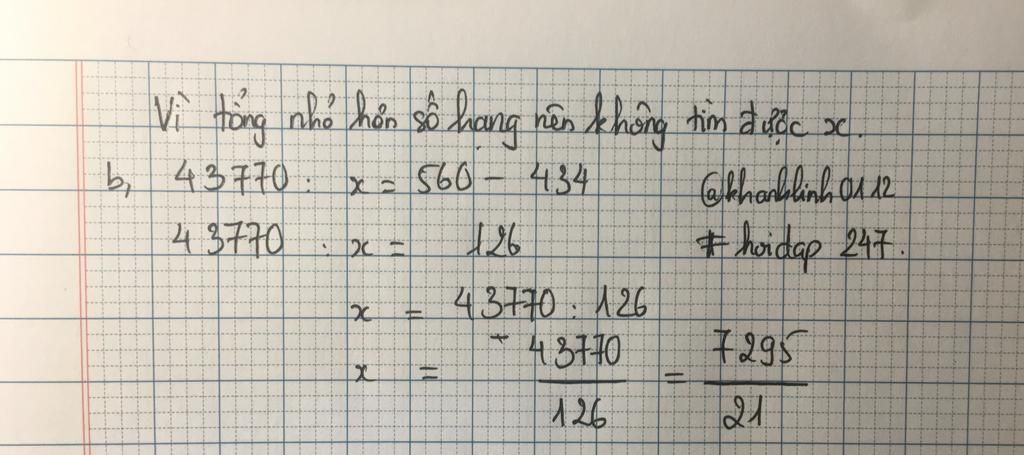 Vì tổng nhỏ hơn số hạng nên không tìm được x.
b, 43770 : x = 560 - 434 @khanhlinh0112
43770 : x = 126 # hoidap 247.
x = 43770 : 126
x = 43770/126 = 7295/21